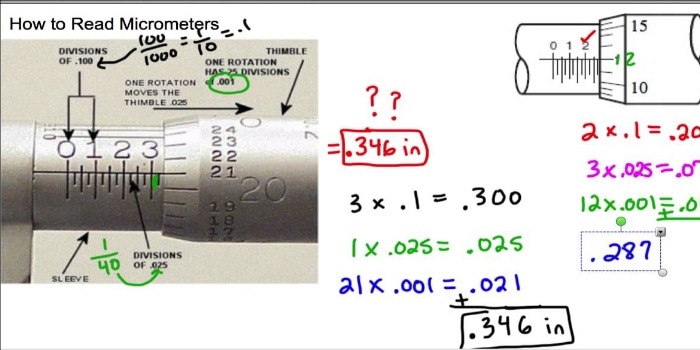 How to Read Micrometers
100
1000
= 1
10
= .1
DIVISIONS
OF .100
THIMBLE
ONE ROTATION
HAS 25 DIVISIONS
of .001
ONE ROTATION
MOVES THE
THIMBLE .025
0 1 2 3
24
23
22
21
20
19
18
17
1
40
DIVISIONS
OF .025
SLEEVE
? ?
= .346 in
3 x .1 = .300
1 x .025 = .025
21 x .001 = .021
+
.346 in
0 1 2
15
12
10
2 x .1 = .20
3 x .025 = .0
12 x .001 = .0
+
.287